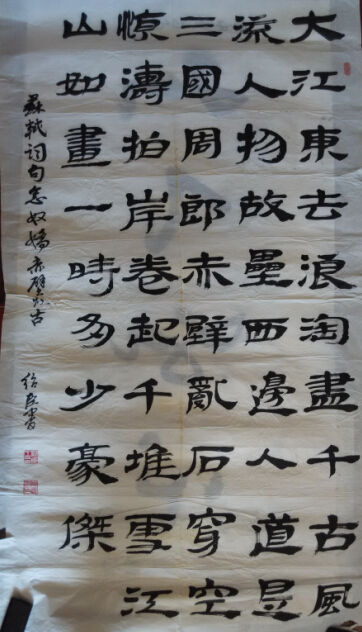 大江東去浪淘盡千古風
流人物故壘西邊人道是
三國周郎赤壁亂石穿空
惊濤拍岸卷起千堆雪江
山如畫一時多少豪傑
蘇軾詞句念奴嬌赤壁懷古